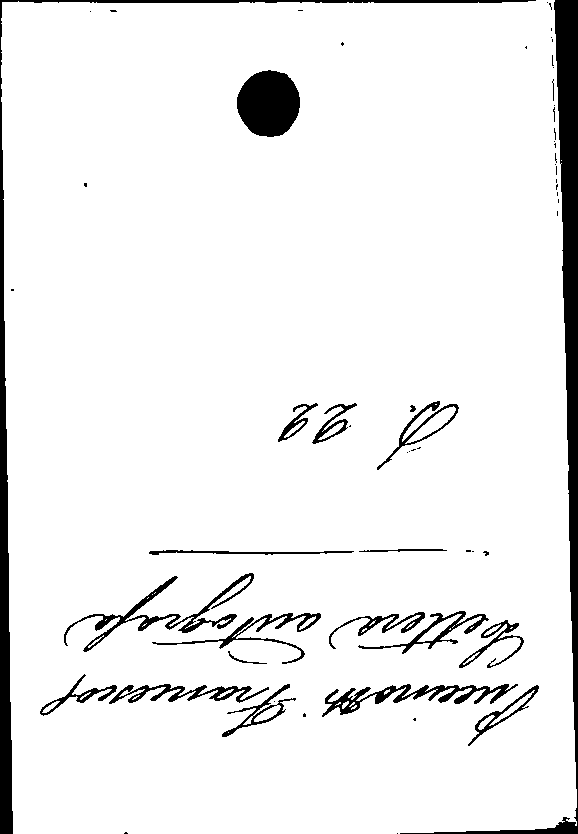 Puccinotti Francesco
Lettera autografa
D. 22